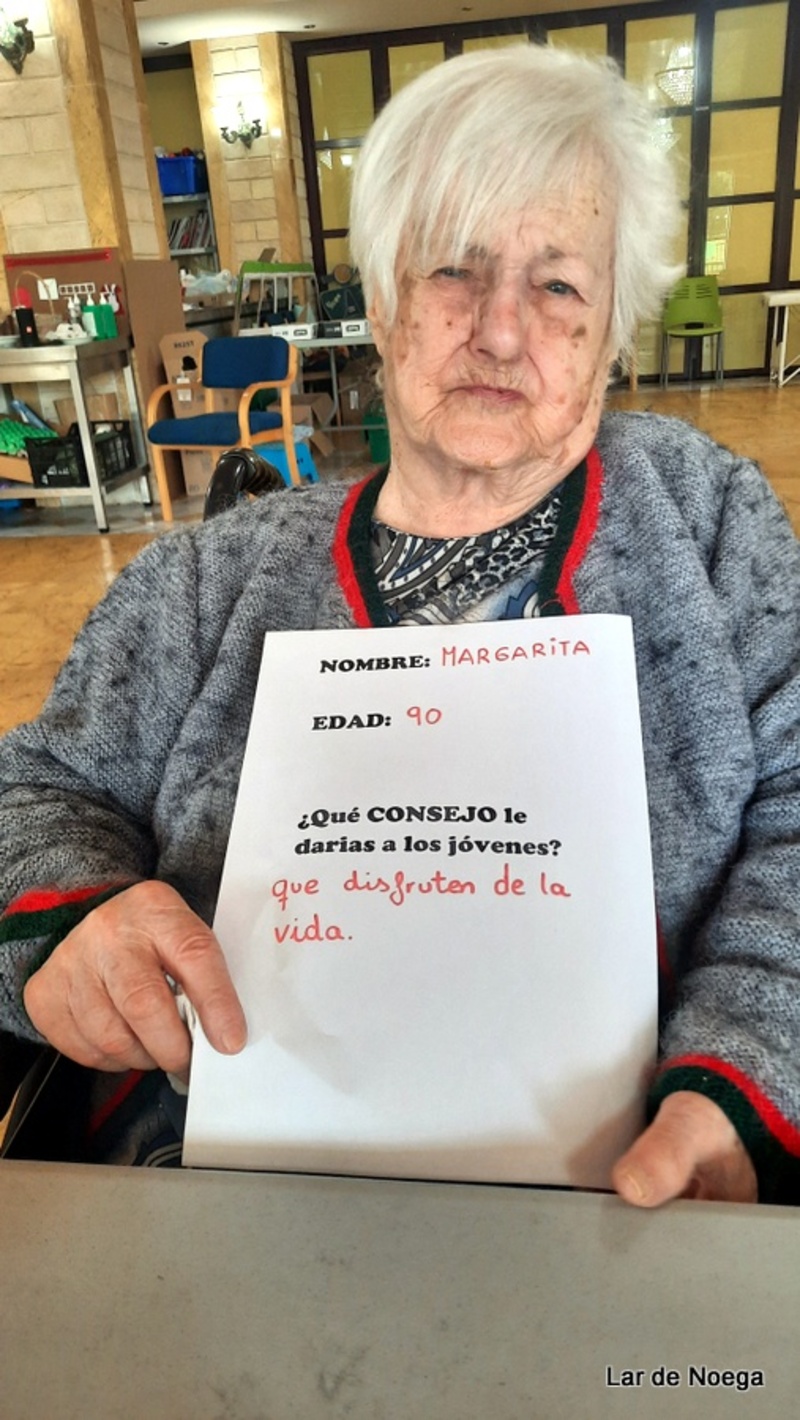 NOMBRE: MARGARITA
EDAD: 90
¿Qué CONSEJO le
darias a los jóvenes?
que disfruten de la
vida.
Lar de Noega